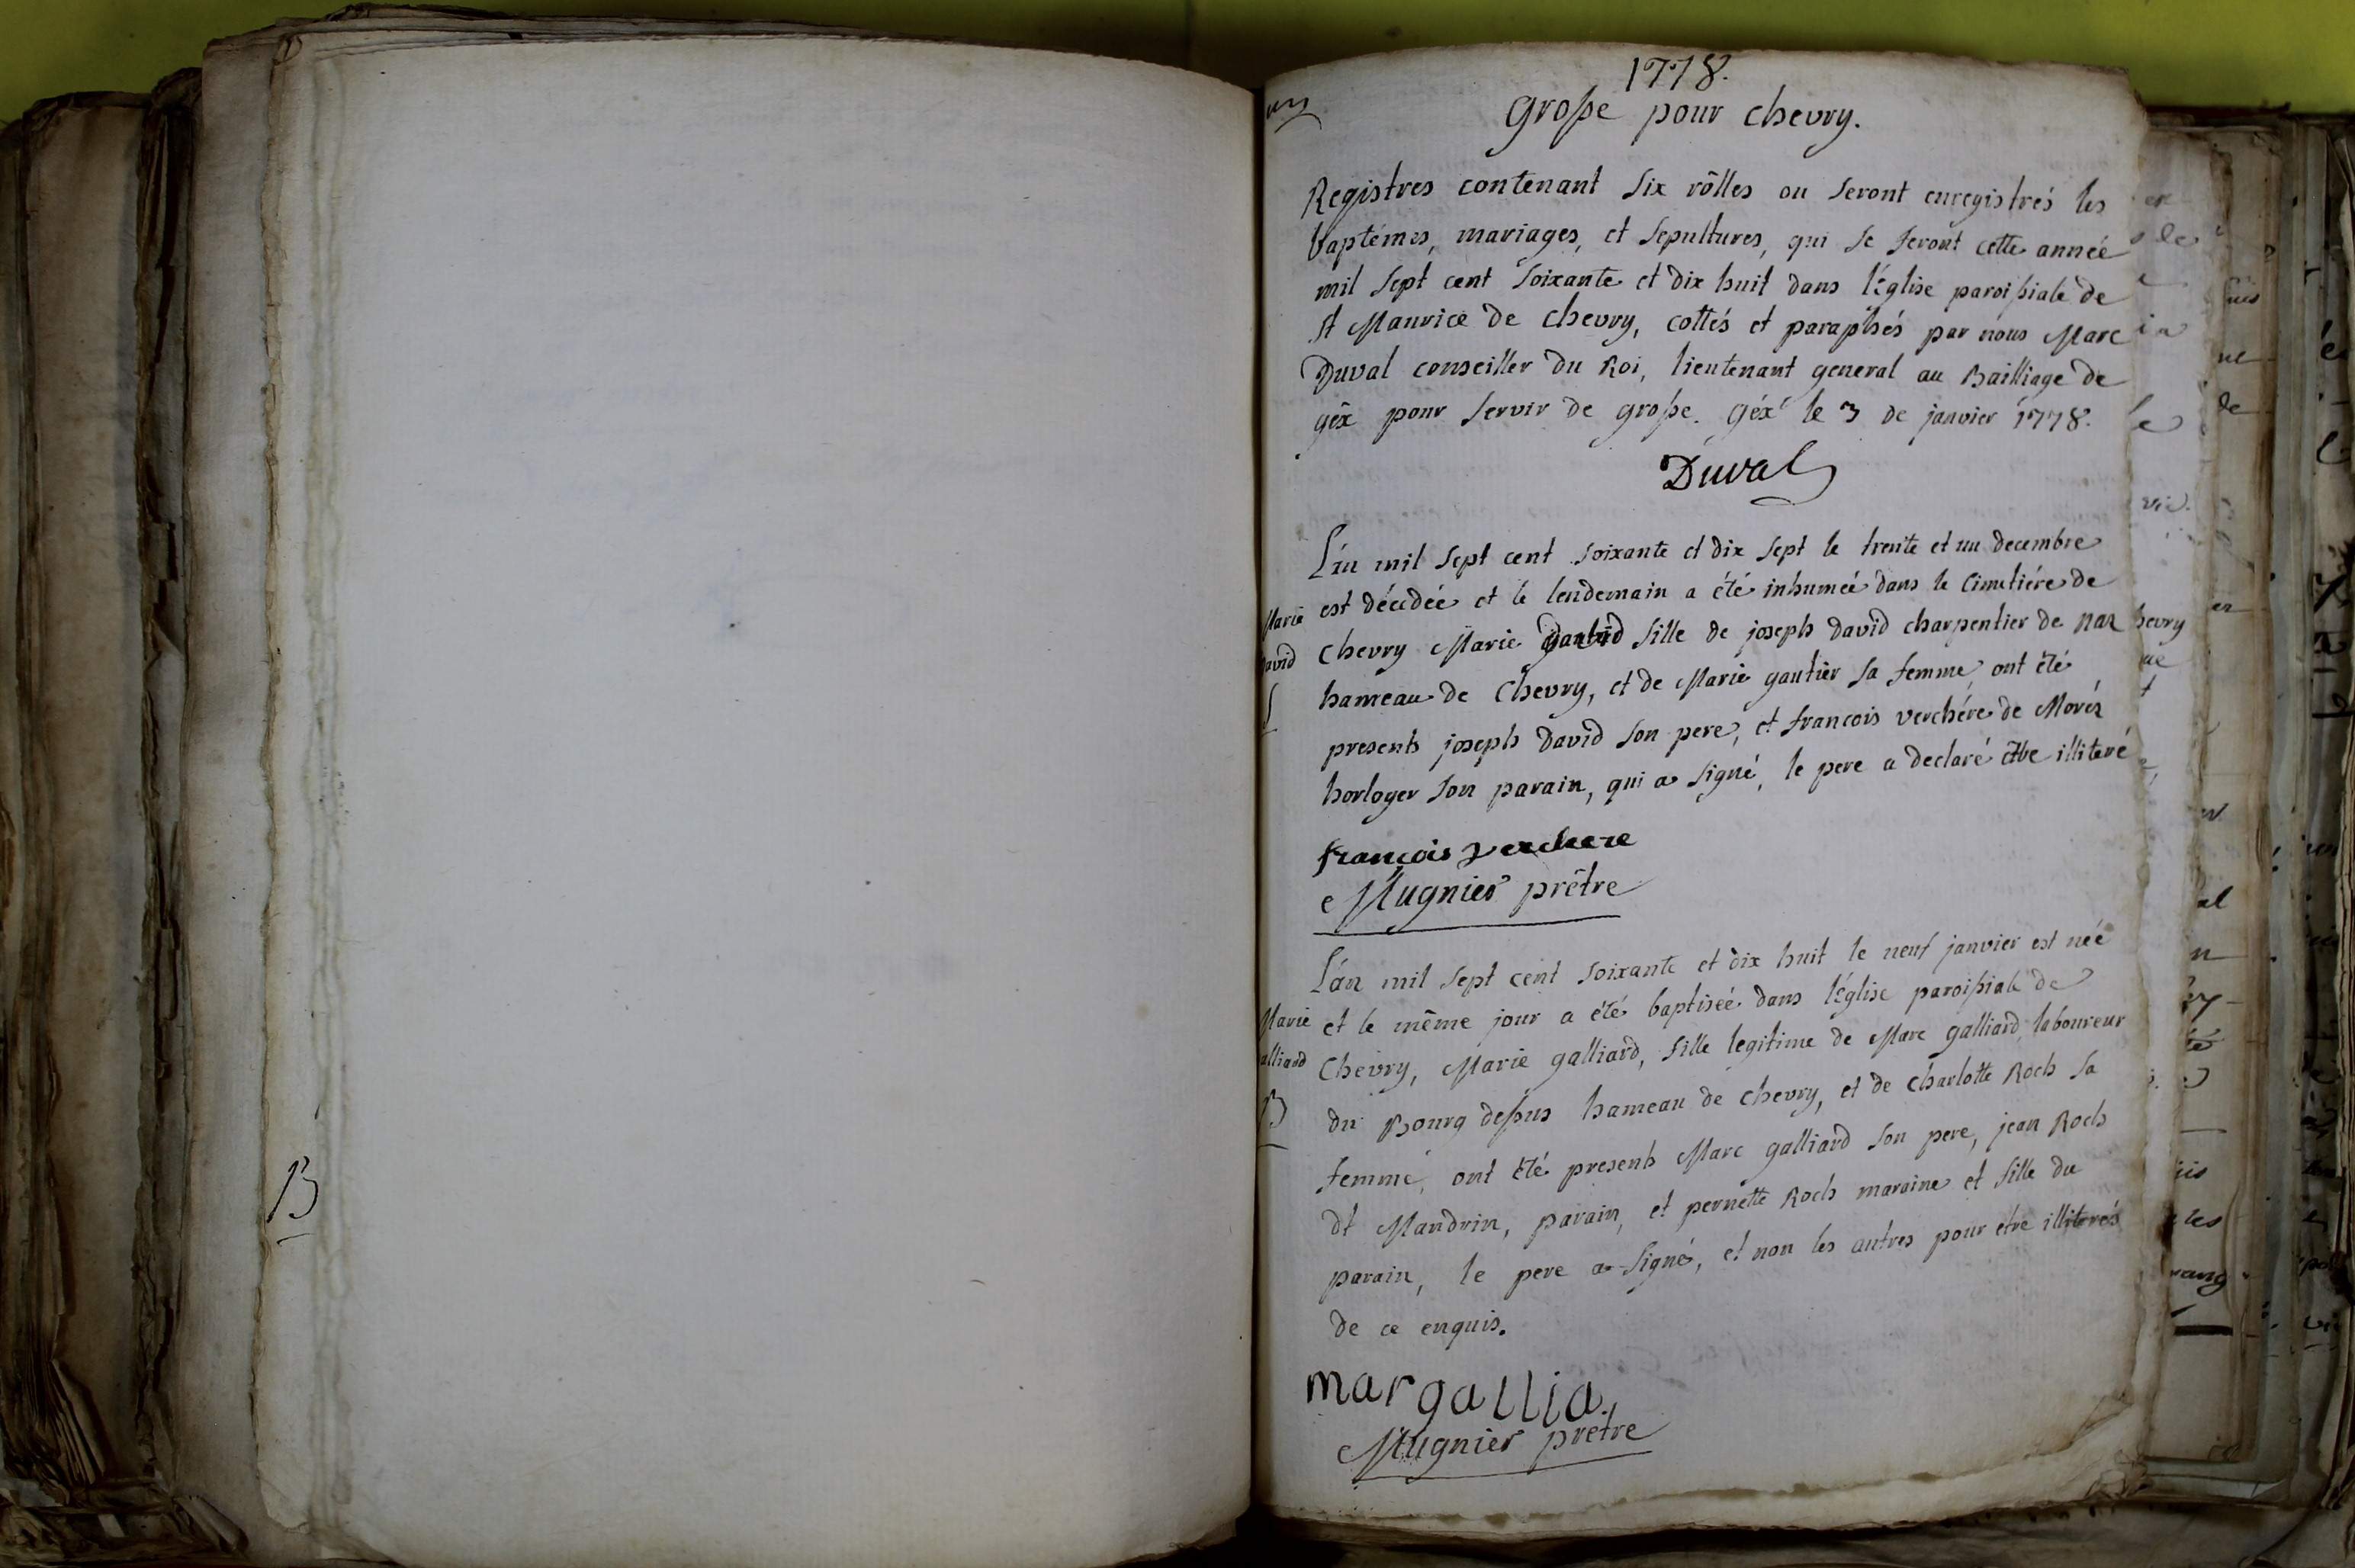 B
un
1778.
Grosse pour chevry.
Registres contenant six rôlles ou seront enregistrés les
baptémes, mariages, et sepultures, qui se feront cette année
mil sept cent soixante et dix huit dans l'église paroissiale de
st Maurice de chevry, cottés et paraphés par nous Marc
Duval conseiller du Roi, lieutenant general au Bailliage de
géx pour servir de grosse. géx le 3 de janvier 1778.
Duval
L'an mil sept cent soixante et dix sept le trente et un decembre
est décédée et le lendemain a été inhumée dans le cimetiére de
Marie
David
S
chevry Marie David fille de joseph david charpentier de naz
hameau de chevry, et de Marie gautier sa femme ont été
presents joseph david son pere, et francois verchére de Moréz
horloger son parain, qui a signé, le pere a declaré être illiteré
françois verchere
Mugnier prêtre
L'an mil sept cent soixante et dix huit le neuf janvier est née
et le même jour a été baptisée dans l'église paroissiale de
Marie
alliard
B
Chevry, Marie galliard, fille legitime de Marc galliard laboureur
du Bourg dessus hameau de chevry, et de charlotte Roch sa
femme, ont été presents Marc galliard son pere, jean Roch
dt Mandrin, parain, et pernette Roch maraine et fille du
parain, le pere a signé, et non les autres pour etre illiterés
de ce enquis.
mar gallia
Mugnier prêtre